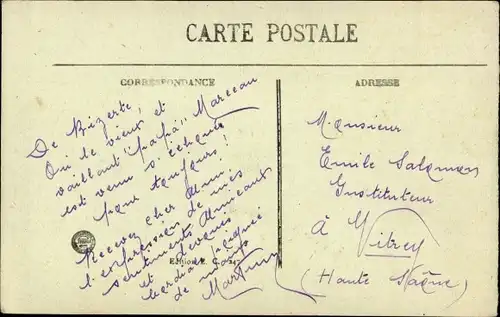 CARTE POSTALE
CORRESPONDANCE
ADRESSE
De Bizerte,
Où le vieux et
vaillant "papa" Marceau
est venu s'échouer
pour toujours!
Recevez cher Ami
l'expression de mes
sentiments amicaux
et dévoués
cordiale poignée
de mains
Martin
Monsieur
Emile Salomon
Instituteur
à Vitrey
(Haute Saône)
Edition E. C.